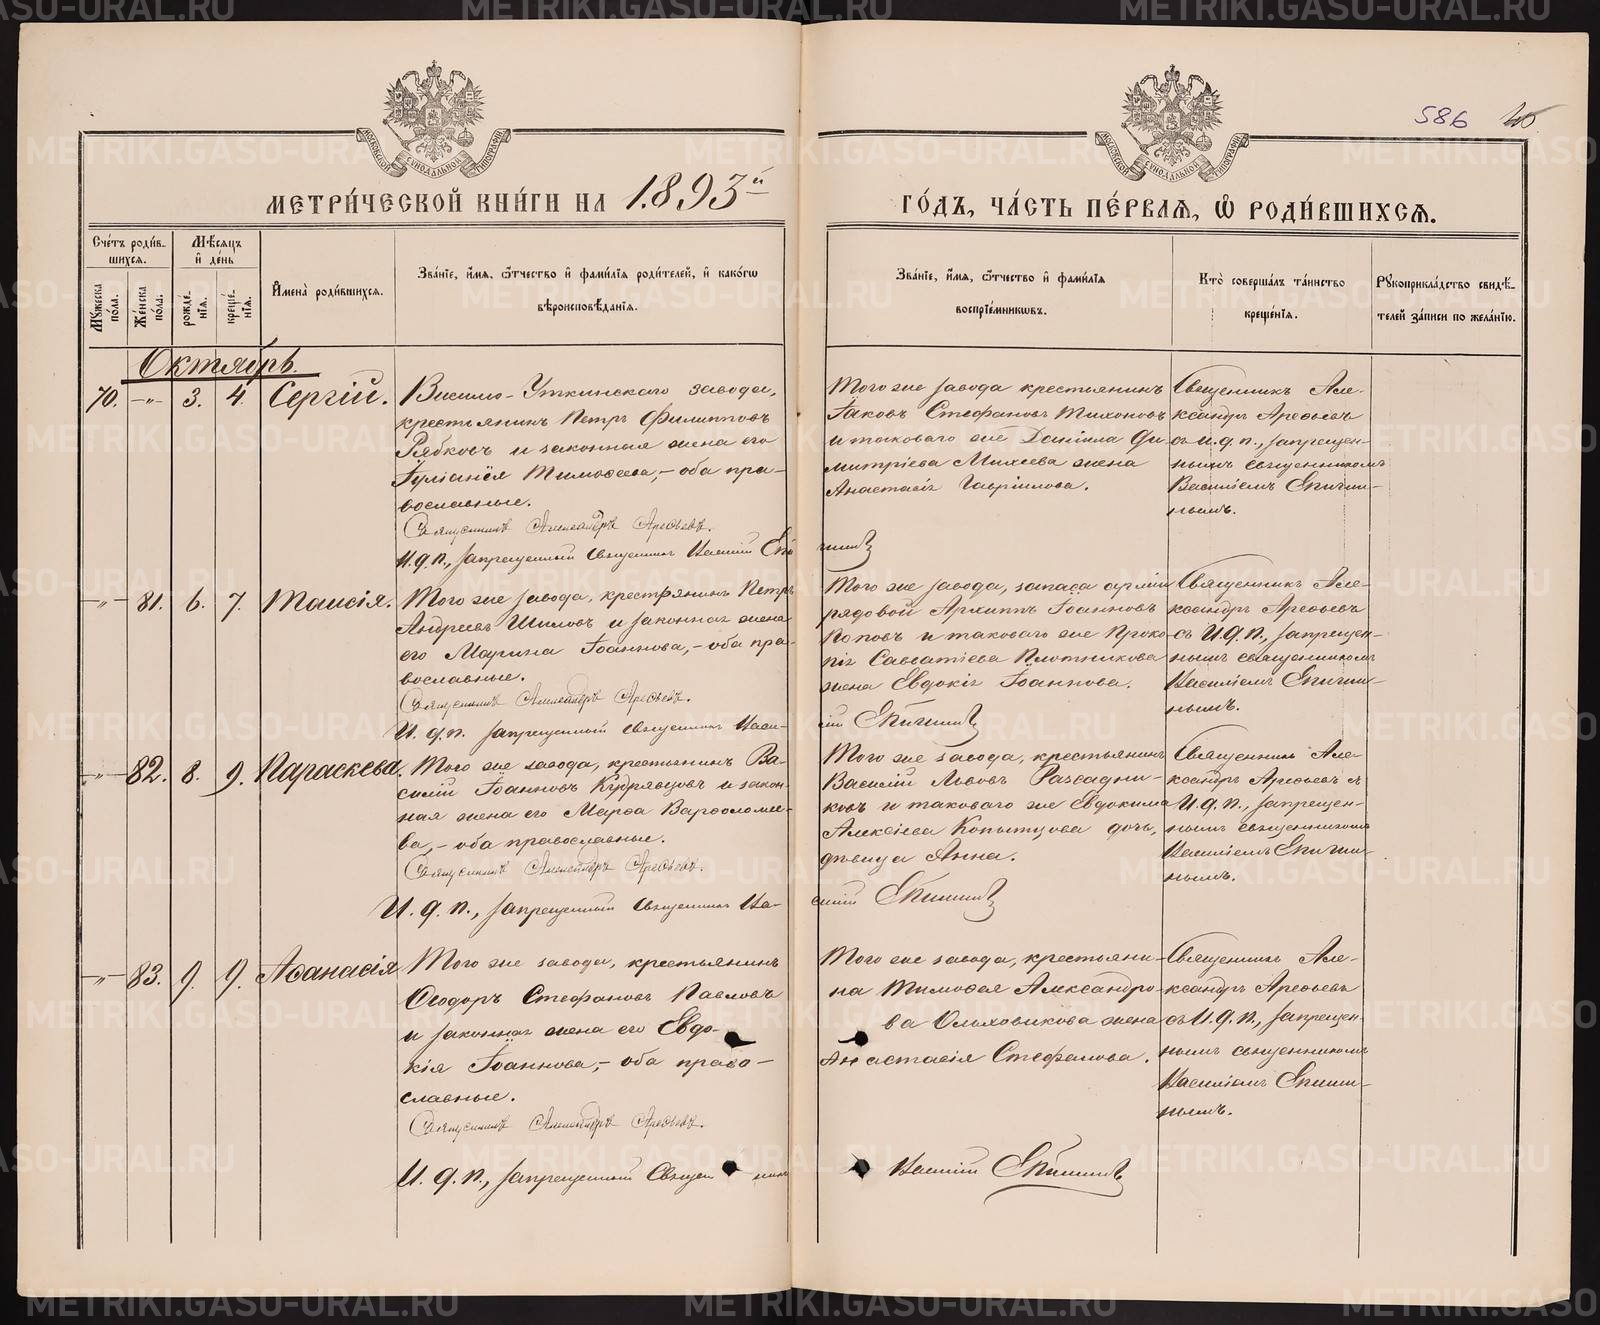 586
МЕТРИ́ЧЕСКОЙ КНИ́ГИ НА 1893й
ГО́ДЪ, ЧА́СТЬ ПЕ́РВАЯ, Ѽ РОДИ́ВШИХСЯ.
Сче́тъ роди́в-
шихся.
Мѣ́сяцъ
и҆ де́нь
Му́жеска
по́ла.
Же́нска
по́ла.
рожде́-
нїя.
креще́-
нїя.
И҆мена̀ роди́вшихся.
Зва́нїе, и҆́мя, ѻ҆́тчество и҆ фами́лїя роди́телей, и҆ како́гѡ
вѣроисповѣ́данїя.
Зва́нїе, и҆́мя, ѻ҆́тчество и҆ фами́лїя
воспрїе́мникѡвъ.
Кто̀ соверша́лъ та́инство
креще́нїя.
Рꙋкоприкла́дство свидѣ́-
телей за́писи по жела́нїю.
Октябрь.
70. -„- 3. 4. Сергій.
Висимо-Уткинскаго завода,
крестьянинъ Петръ Филипповъ
Рябковъ и законная жена его
Іуліанія Тимоѳеева,- оба пра-
вославные.
Священникъ Александръ Арефьевъ.
И. д. п., запрещенный Священникъ Василій Епи
чинъ
Того же завода крестьянинъ
Іаковъ Стефановъ Тихоновъ
и таковаго же Даніила Ди-
митріева Михеева жена
Анастасія Гавріилова.
Священникъ Але-
ксандръ Арефьевъ
съ и. д. п., запрещен-
нымъ священникомъ
Василіемъ Епичи-
нымъ.
-„- 81. 6. 7. Таисія.
Того же завода, крестьянинъ Петръ
Андреевъ Шиловъ и законная жена
его Марина Іоаннова,- оба пра-
вославные.
Священникъ Александръ Арефьевъ.
И. д. п. запрещенный Священникъ Васи-
лій Епичинъ
Того же завода, запаса арміи
рядовой Архиппъ Іоанновъ
Поповъ и таковаго же Проко-
пія Савватіева Плотникова
жена Евдокія Іоаннова.
Священникъ Але-
ксандръ Арефьевъ
съ И. д. п., запрещен-
нымъ священникомъ
Василіемъ Епичи-
нымъ.
-„- 82. 8. 9. Параскева.
Того же завода, крестьянинъ Ва-
силій Іоанновъ Кудрявцовъ и закон-
ная жена его Марѳа Варѳоломее-
ва,- оба православные.
Священникъ Александръ Арефьевъ.
И. д. п., запрещенный Священникъ Ва-
силій Епичинъ
Того же завода, крестьянинъ
Василій Львовъ Разсадни-
ковъ и таковаго же Евдокима
Алексіева Копытцова дочь,
дѣвица Анна.
Священникъ Але-
ксандръ Арефьевъ съ
И. д. п., запрещен-
нымъ священникомъ
Василіемъ Епичи-
нымъ.
-„- 83. 9. 9. Аѳанасія
Того же завода, крестьянинъ
Ѳеодоръ Стефановъ Павловъ
и законная жена его Евдо-
кія Іоаннова,- оба право-
славные.
Священникъ Александръ Арефьевъ.
И. д. п., запрещенный Священникъ
Василій Епичинъ
Того же завода, крестьяни-
на Тимоѳея Александро-
ва Ольховикова жена
Анастасія Стефанова.
Священникъ Але-
ксандръ Арефьевъ
съ И. д. п., запрещен-
нымъ священникомъ
Василіемъ Епичи-
нымъ.
METRIKI.GASO-URAL.RU